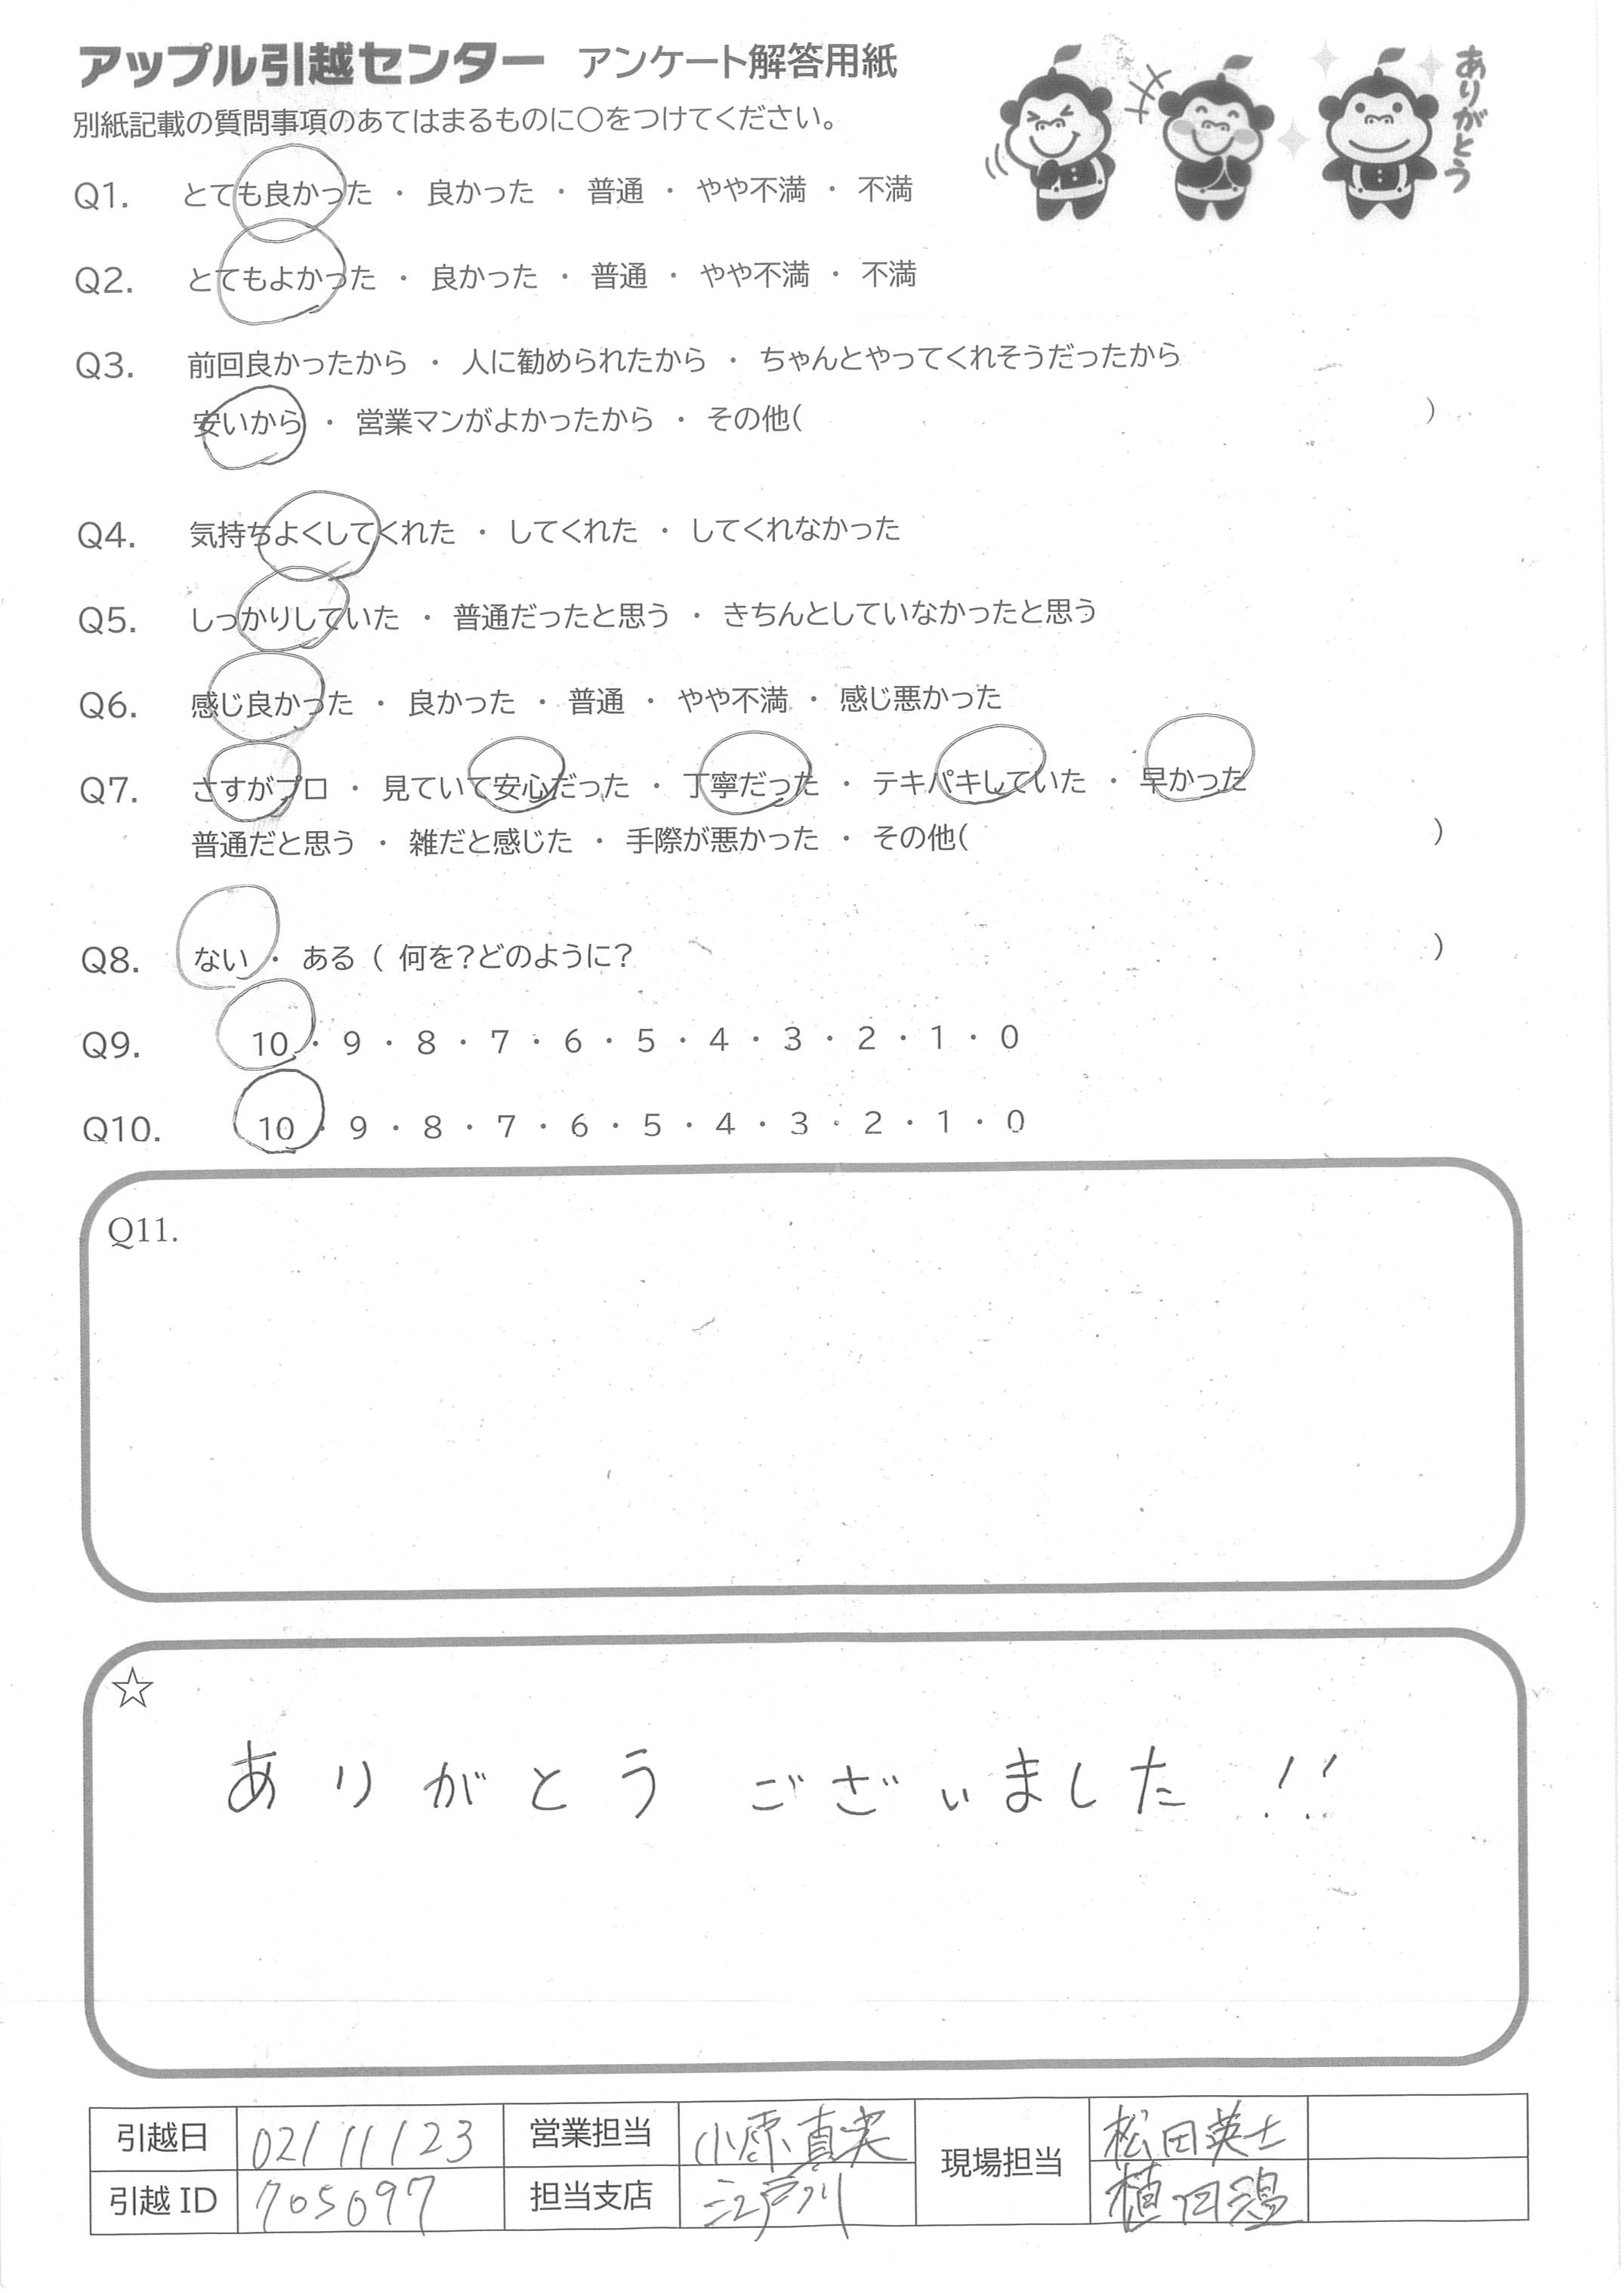 アップル引越センター アンケート解答用紙
ありがとう
別紙記載の質問事項のあてはまるものに〇をつけてください。
Q1. とても良かった ・ 良かった ・ 普通 ・ やや不満 ・ 不満
Q2. とてもよかった ・ 良かった ・ 普通 ・ やや不満 ・ 不満
Q3. 前回良かったから ・ 人に勧められたから ・ ちゃんとやってくれそうだったから
安いから ・ 営業マンがよかったから ・ その他( )
Q4. 気持ちよくしてくれた ・ してくれた ・ してくれなかった
Q5. しっかりしていた ・ 普通だったと思う ・ きちんとしていなかったと思う
Q6. 感じ良かった ・ 良かった ・ 普通 ・ やや不満 ・ 感じ悪かった
Q7. さすがプロ ・ 見ていて安心だった ・ 丁寧だった ・ テキパキしていた ・ 早かった
普通だと思う ・ 雑だと感じた ・ 手際が悪かった ・ その他( )
Q8. ない ・ ある ( 何を?どのように? )
Q9. 10 ・ 9 ・ 8 ・ 7 ・ 6 ・ 5 ・ 4 ・ 3 ・ 2 ・ 1 ・ 0
Q10. 10 ・ 9 ・ 8 ・ 7 ・ 6 ・ 5 ・ 4 ・ 3 ・ 2 ・ 1 ・ 0
Q11.
☆
ありがとう ございました !!
引越日 02/11/23 営業担当 小原真実 現場担当 松田英士
引越 ID 705097 担当支店 江戸川 植田